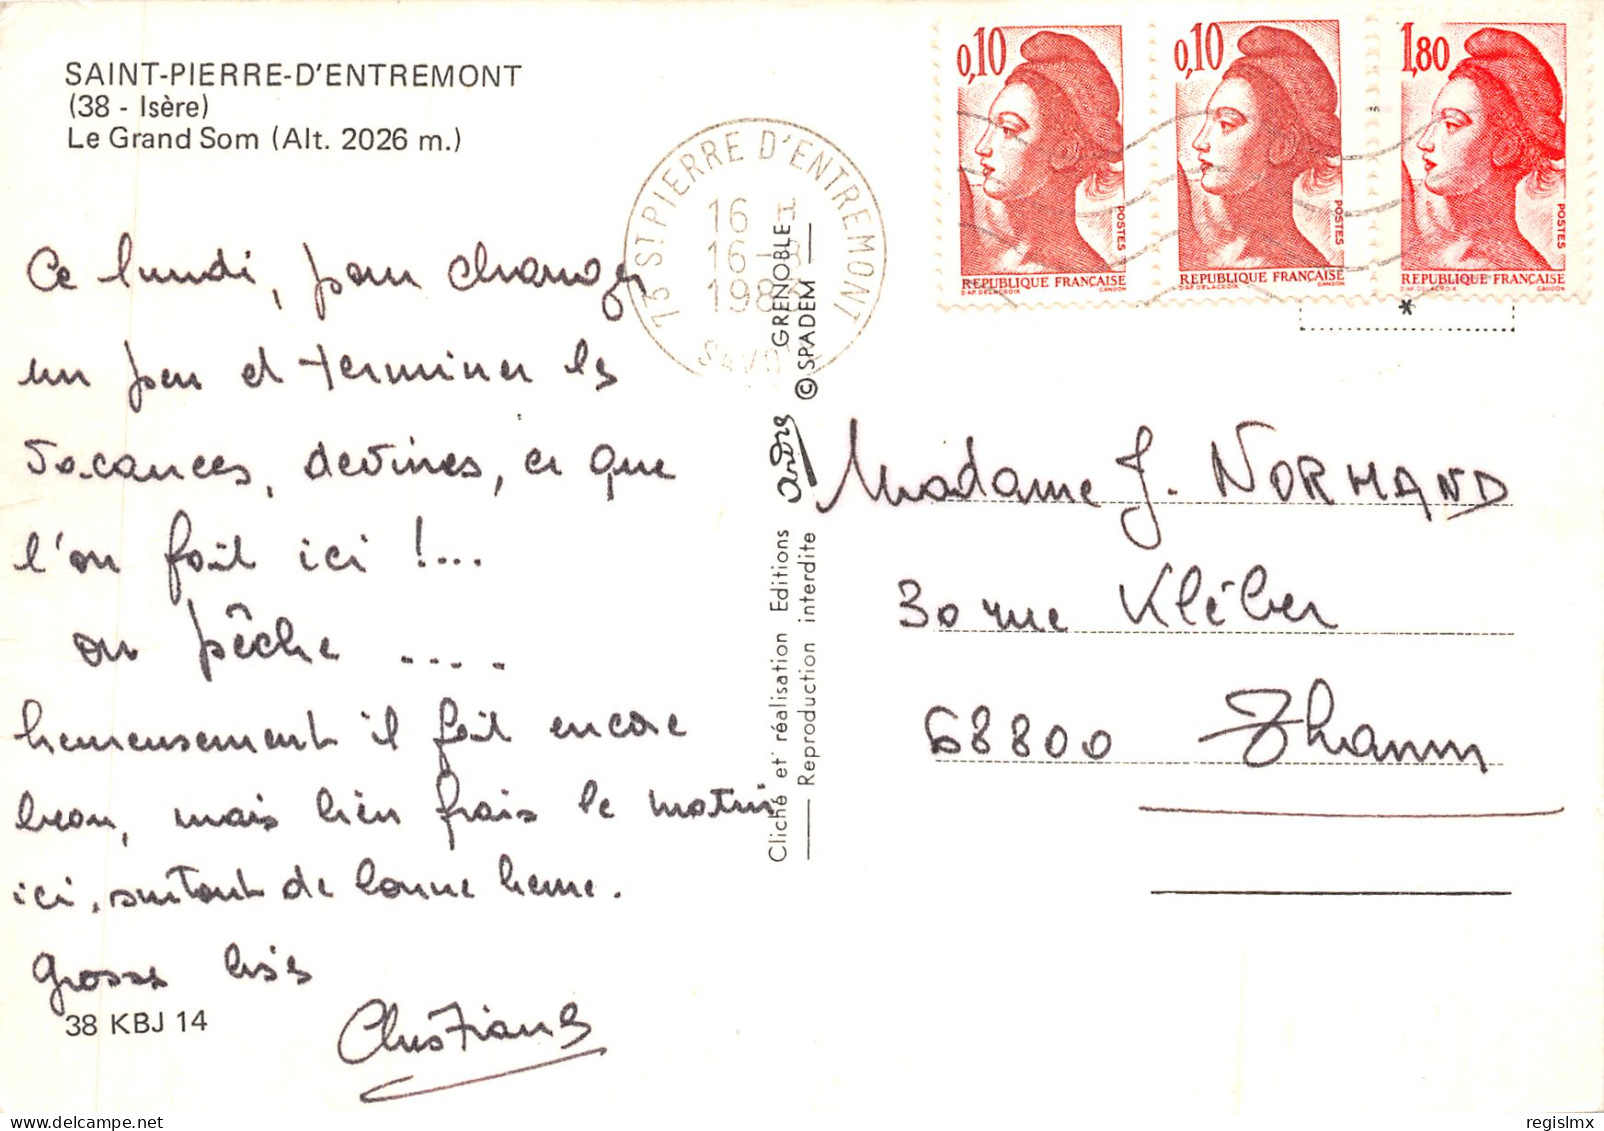 SAINT-PIERRE-D'ENTREMONT
(38 - Isère)
Le Grand Som (Alt. 2026 m.)
Ce lundi, pour changer
un peu et terminer les
vacances, devines, ce que
l'on fait ici !...
on pêche ....
heureusement il fait encore
beau, mais bien frais le matin
ici, surtout de bonne heure.
Grosses bises
Christiane
38 KBJ 14
73 ST PIERRE D'ENTREMONT
16 H
16 - 8
1983
SAVOIE
Cliché et réalisation Editions André GRENOBLE
Reproduction interdite © SPADEM
0,10
POSTES
REPUBLIQUE FRANÇAISE
D'AP. DELACROIX GANDON
0,10
POSTES
REPUBLIQUE FRANÇAISE
D'AP. DELACROIX GANDON
1,80
POSTES
REPUBLIQUE FRANÇAISE
D'AP. DELACROIX GANDON
*
Madame J. NORMAND
30 rue Kléber
68800 Thann
regislmx